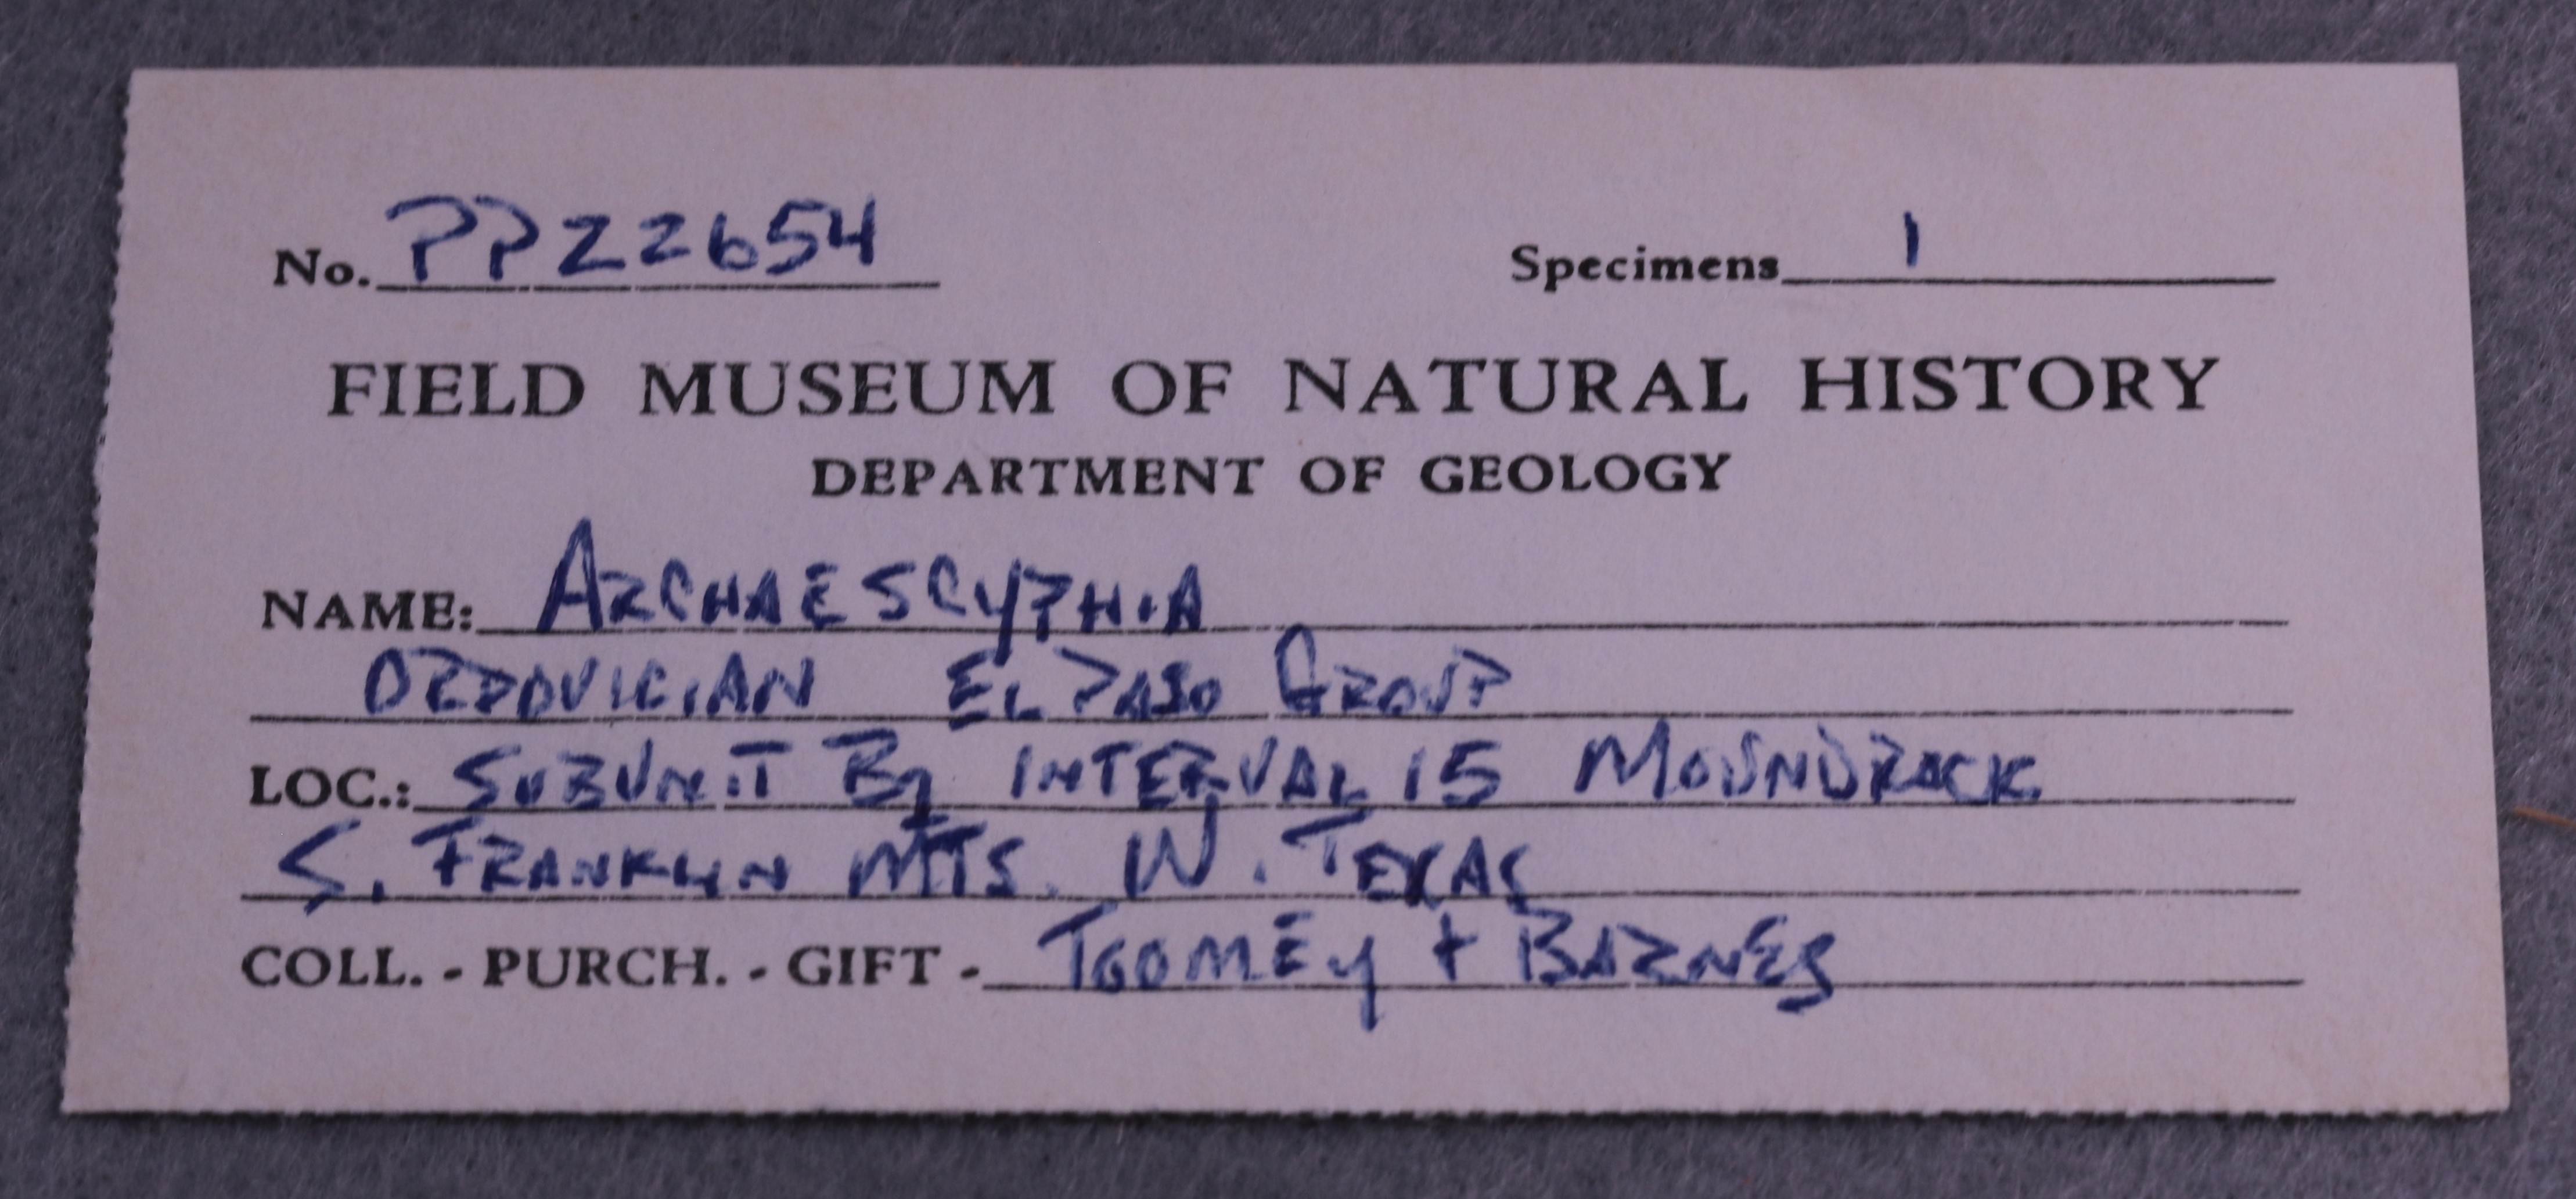 No. PP22654 Specimens 1
FIELD MUSEUM OF NATURAL HISTORY
DEPARTMENT OF GEOLOGY
NAME: ARCHAESCYPHIA
ORDOVICIAN EL PASO GROUP
LOC.: SUBUNIT B1 INTERVAL 15 MOUNDROCK
S. FRANKLIN MTS. W. TEXAS
COLL. - PURCH. - GIFT - TOOMEY + BARNES